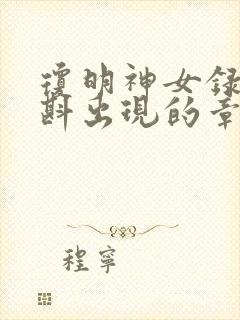 瓊明神女錄
斟出現的章
程寧